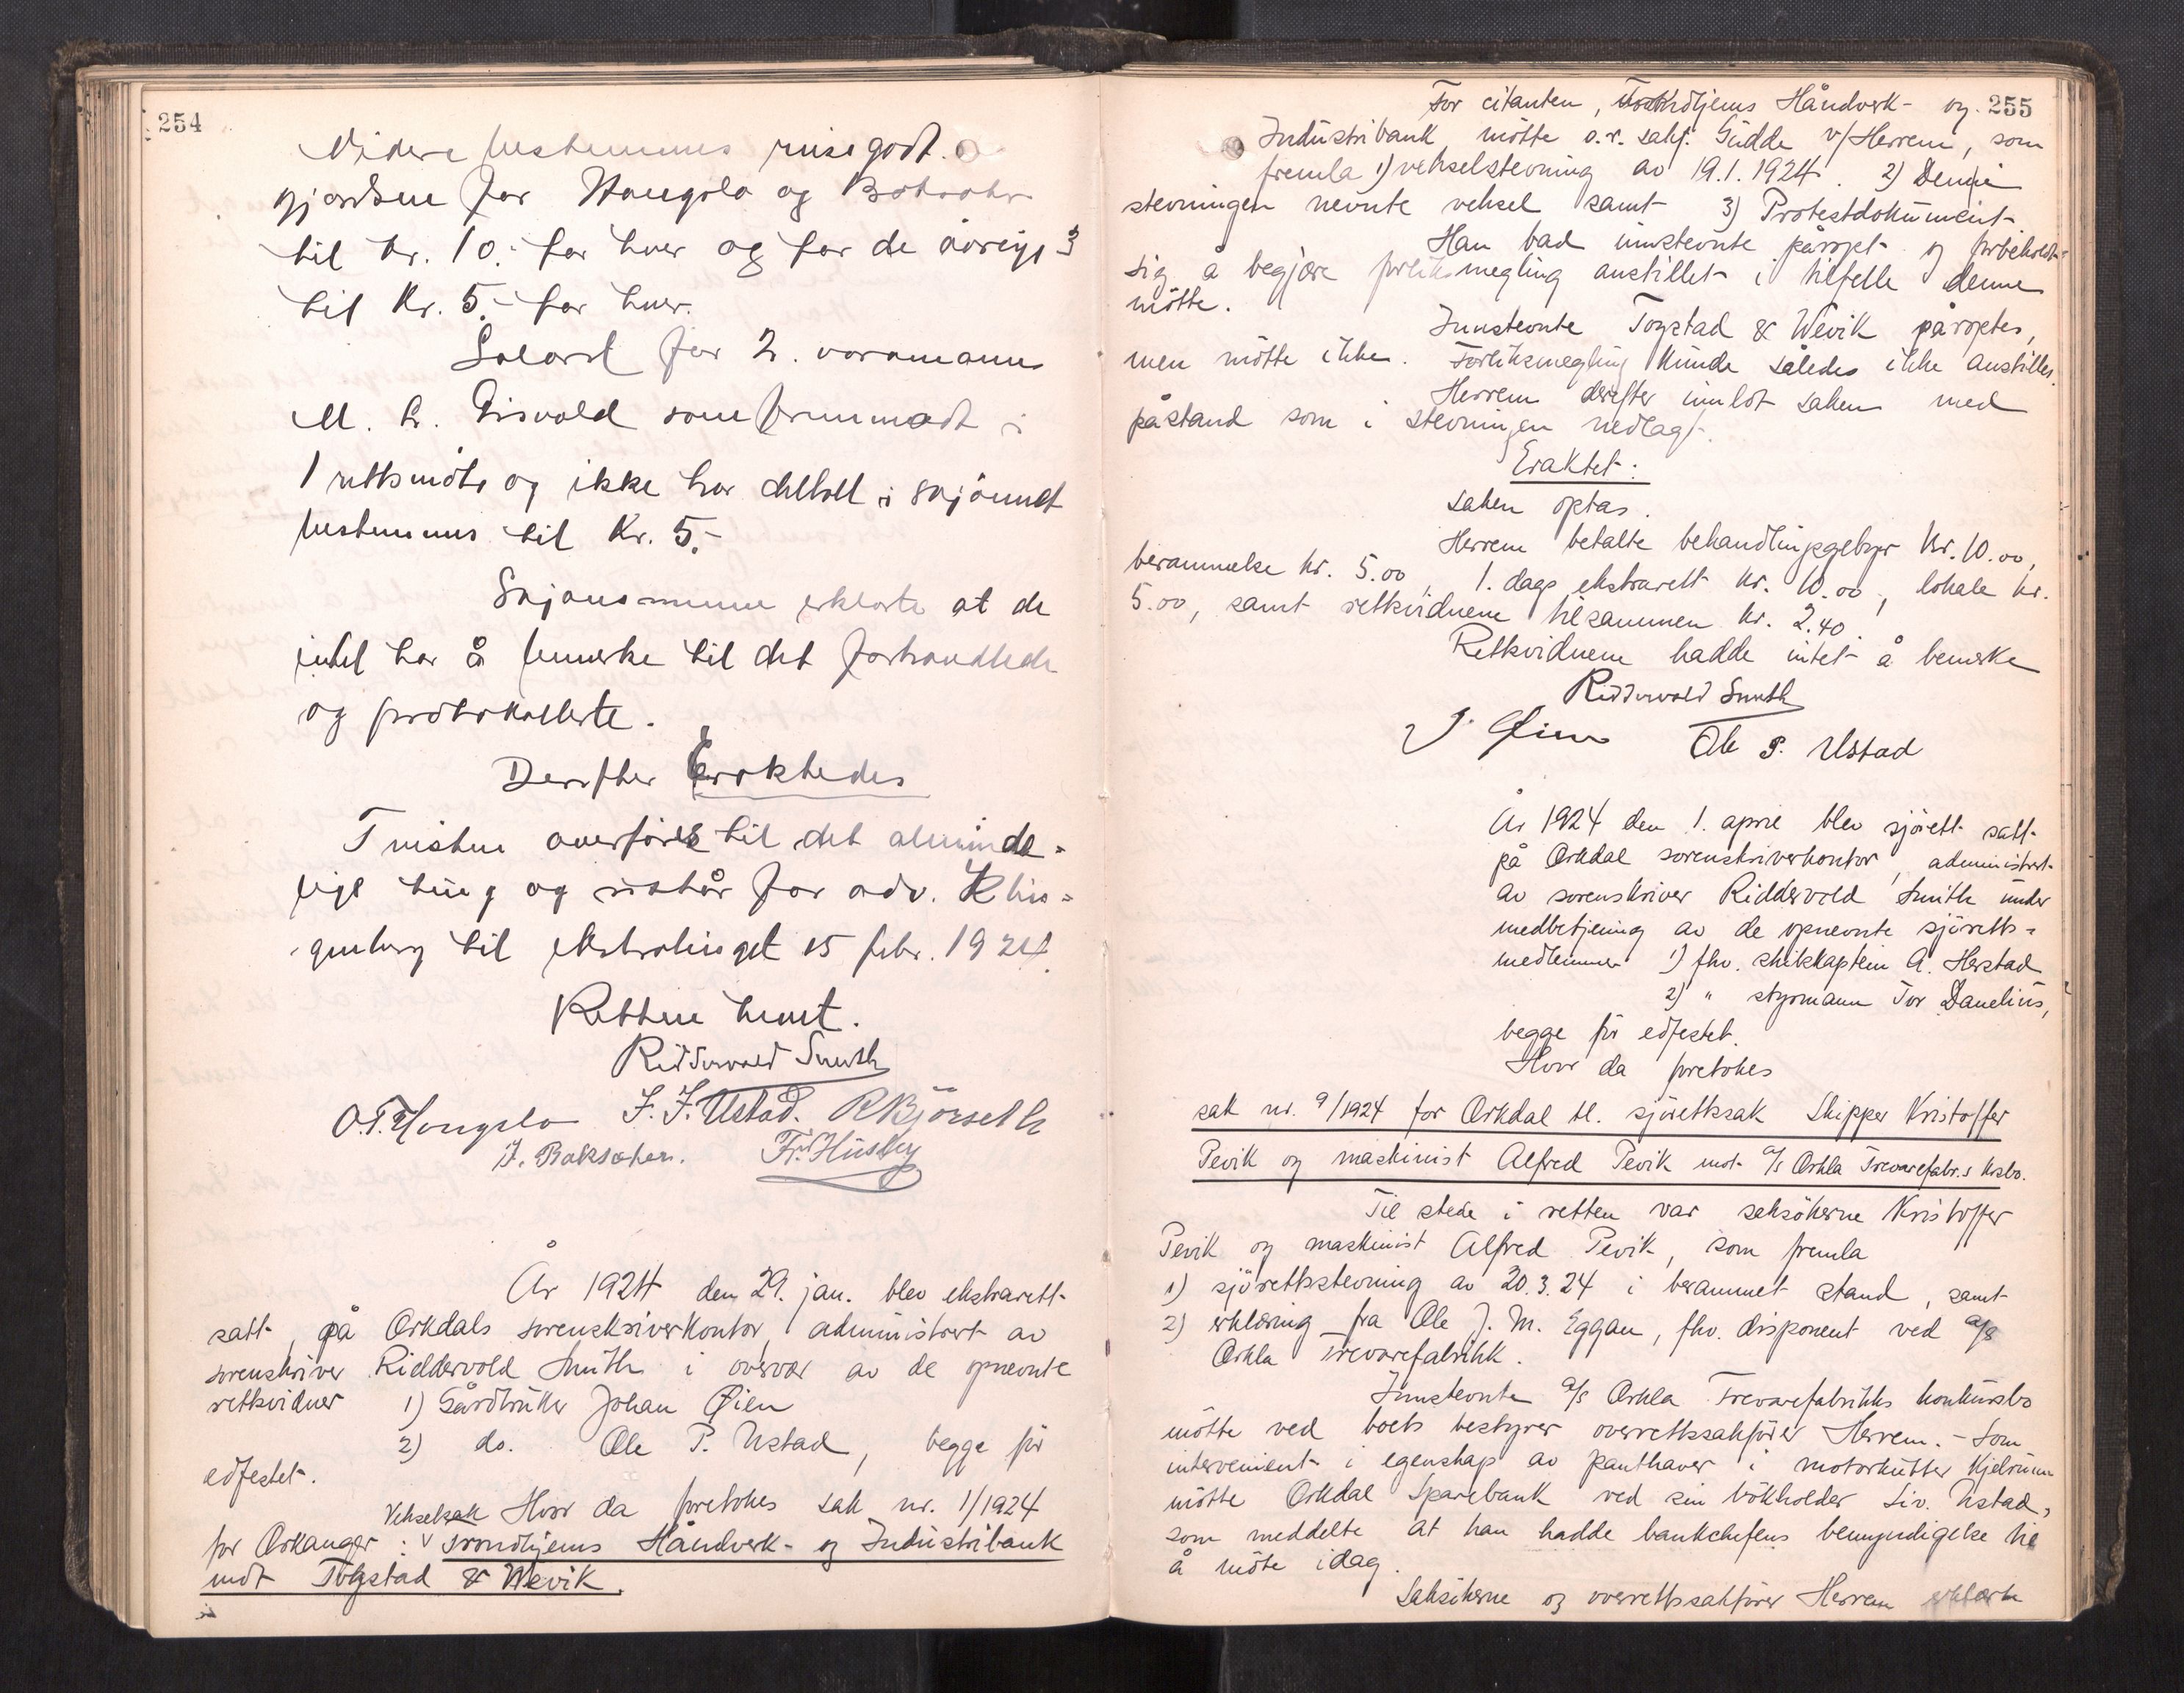 254
Videre bestemmes reisegodt-
gjørelsen for Hongslo og Boksaker
til kr. 10.- for hver og for de øvrige 3
til Kr. 5.- for hver.
Salær for 2. varamann
M. L. Disvold som fremmødt i
1 rettsmøte og ikke har deltatt i skjønnet
bestemmes til Kr. 5.-
Skjønsmenne erklærte at de
intet har å bemerke til det forhandlede
og protokollerte.
Derefter Eraktedes
Tvisten overføres til det alminde-
lige ting og utstår for adv. Klin-
genberg til ekstratinget 15 febr. 1924.
Retten hevet.
Riddervold Smith
O. T. Hongslo J. J. Ustad. R Bjørseth
J. Boksaker. Fr. Husby
År 1924 den 29. jan. blev ekstrarett
satt, på Orkdals sorenskriverkontor, administrert av
sorenskriver Riddervold Smith i overvær av de opnevnte
rettsvidner 1) Gårdbruker Johan Øien
2) do. Ole P. Ustad, begge før
edfestet.
Vekselsak Hvor da foretokes sak nr. 1/1924
for Orkanger : v Trondhjems Håndverk- og Industribank
mot Togstad & Wevik.
255
For citanten, Trondhjems Håndverk- og
Industribank møtte o.r. sakf. Gudde v/Herrem, som
fremla 1) vekselstevning av 19.1.1924. 2) Den i
stevningen nevnte veksel samt 3) Protestdokument
Han bad innstevnte påropt og forbeholdt
sig å begjære forliksmegling anstillet i tilfelle denne
møtte.
Innstevnte Togstad & Wevik påroptes,
men møtte ikke. Forliksmegling kunde således ikke anstilles.
Herrem derefter innlot saken med
påstand som i stevningen nedlagt.
Eraktet:
Saken optas.
Herrem betalte behandlingsgebyr Kr. 10.00,
berammelse kr. 5.00, 1. dags ekstrarett kr. 10.00, lokale kr.
5.00, samt rettsvidnene tilsammen kr. 2.40.
Rettsvidnene hadde intet å bemerke
Riddervold Smith
J. Øien Ole P. Ustad
År 1924 den 1. april blev sjørett satt
på Orkdal sorenskriverkontor, administrert
av sorenskriver Riddervold Smith under
medbetjening av de opnevnte sjøretts-
medlemmer 1) fhv. skibskaptein A. Herstad
2) " styrmann Tor Danelius,
begge før edfestet.
Hvor da foretokes
sak nr. 9/1924 for Orkdal tl. sjørettssak Skipper Kristoffer
Pevik og maskinist Alfred Pevik mot A/S Orkla Trevarefabr.s ksbo.
Til stede i retten var saksøkerne Kristoffer
Pevik og maskinist Alfred Pevik, som fremla
1) sjørettsstevning av 20.3.24 i berammet stand, samt
2) erklæring fra Ole J. M. Eggan, fhv. disponent ved A/S
Orkla Trevarefabrikk.
Innstevnte A/S Orkla Trevarefabrikks konkursbo
møtte ved boets bestyrer overrettssakfører Herrem. - Som
intervenient i egenskap av panthaver i motorkutter Kjelrunn
møtte Orkdal Sparebank ved sin bokholder Siv. Ustad,
som meddelte at han hadde bankchefens bemyndigelse til
å møte idag.
Saksøkerne og overrettssakfører Herrem erklærte